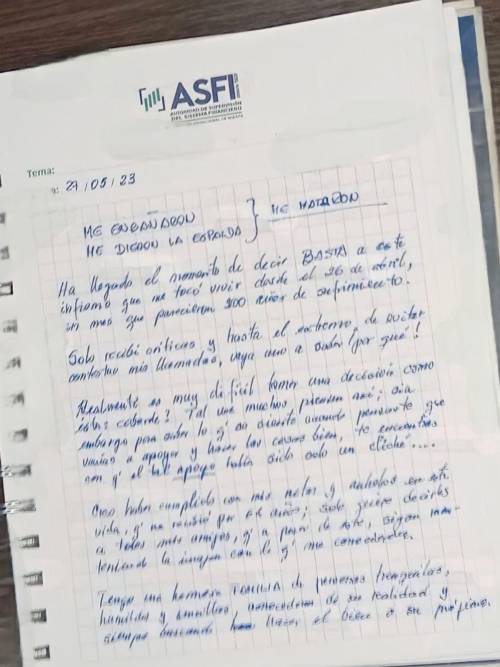 ASFI
AUTORIDAD DE SUPERVISIÓN
DEL SISTEMA FINANCIERO
Tema:
27/05/23
ME ENGAÑARON
ME DIERON LA ESPALDA } ME MATARON
Ha llegado el momento de decir BASTA a este
infierno que me tocó vivir desde el 26 de abril,
un mes que parecieron 100 años de sufrimiento.
Solo recibí criticas y hasta el extremo de evitar
contestar mis llamadas, vaya uno a saber ¡por qué!
Realmente es muy difícil tomar una decisión como
esta; cobarde? Tal vez muchos piensen así; sin
embargo para saber lo q' se siente cuando pensaste que
venías a apoyar y hacer las cosas bien, te encuentras
con q' el apoyo había sido solo un cliché....
Creo haber cumplido con mis metas y anhelos en esta
vida, q' me recibió por años; solo quiero decirles
a todos mis amigos, q' a pesar de esto, sigan man-
teniendo la imagen con la q' me conocieron.
Tengo una hermosa FAMILIA de personas tranquilas,
humildes y sencillas, conocedoras de su realidad y
siempre buscando hacer el bien a su prójimo.